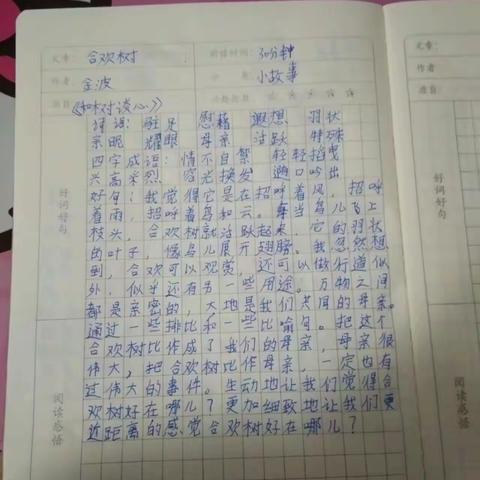 文章： 合欢树 阅读时间： 30分钟 文章：
作者 金波 分 类 小故事 作者
题目 《和树对谈心》 题目
词语：驻足 慰藉 遐想 羽状
亲昵 耀眼 母亲 活跃 特殊
四字成语：情不自禁 轻轻摇曳
兴高采烈 容光焕发 随口吟出
好句：我觉得它是在招呼着风，招呼
着雨，招呼着鸟和云。每当鸟儿飞上
枝头，合欢树就活跃起来，它的羽状
的叶子，像鸟儿展开翅膀。我忽然想
到，合欢可以观赏，还可以做行道似
外，似乎还有另一些用途。万物之间
都是亲密的，大地是我们共同的母亲。
通过一些排比和一些比喻句。把这个
合欢树比作成了我们的母亲，母亲很
伟大，把合欢树比作母亲，一定也有
过伟大的事件。生动地让我们觉得合
欢树好在哪儿？更加细致地让我们更
近距离的感觉合欢树好在哪儿？
好词好句
阅读感悟
好词好句
阅读感悟